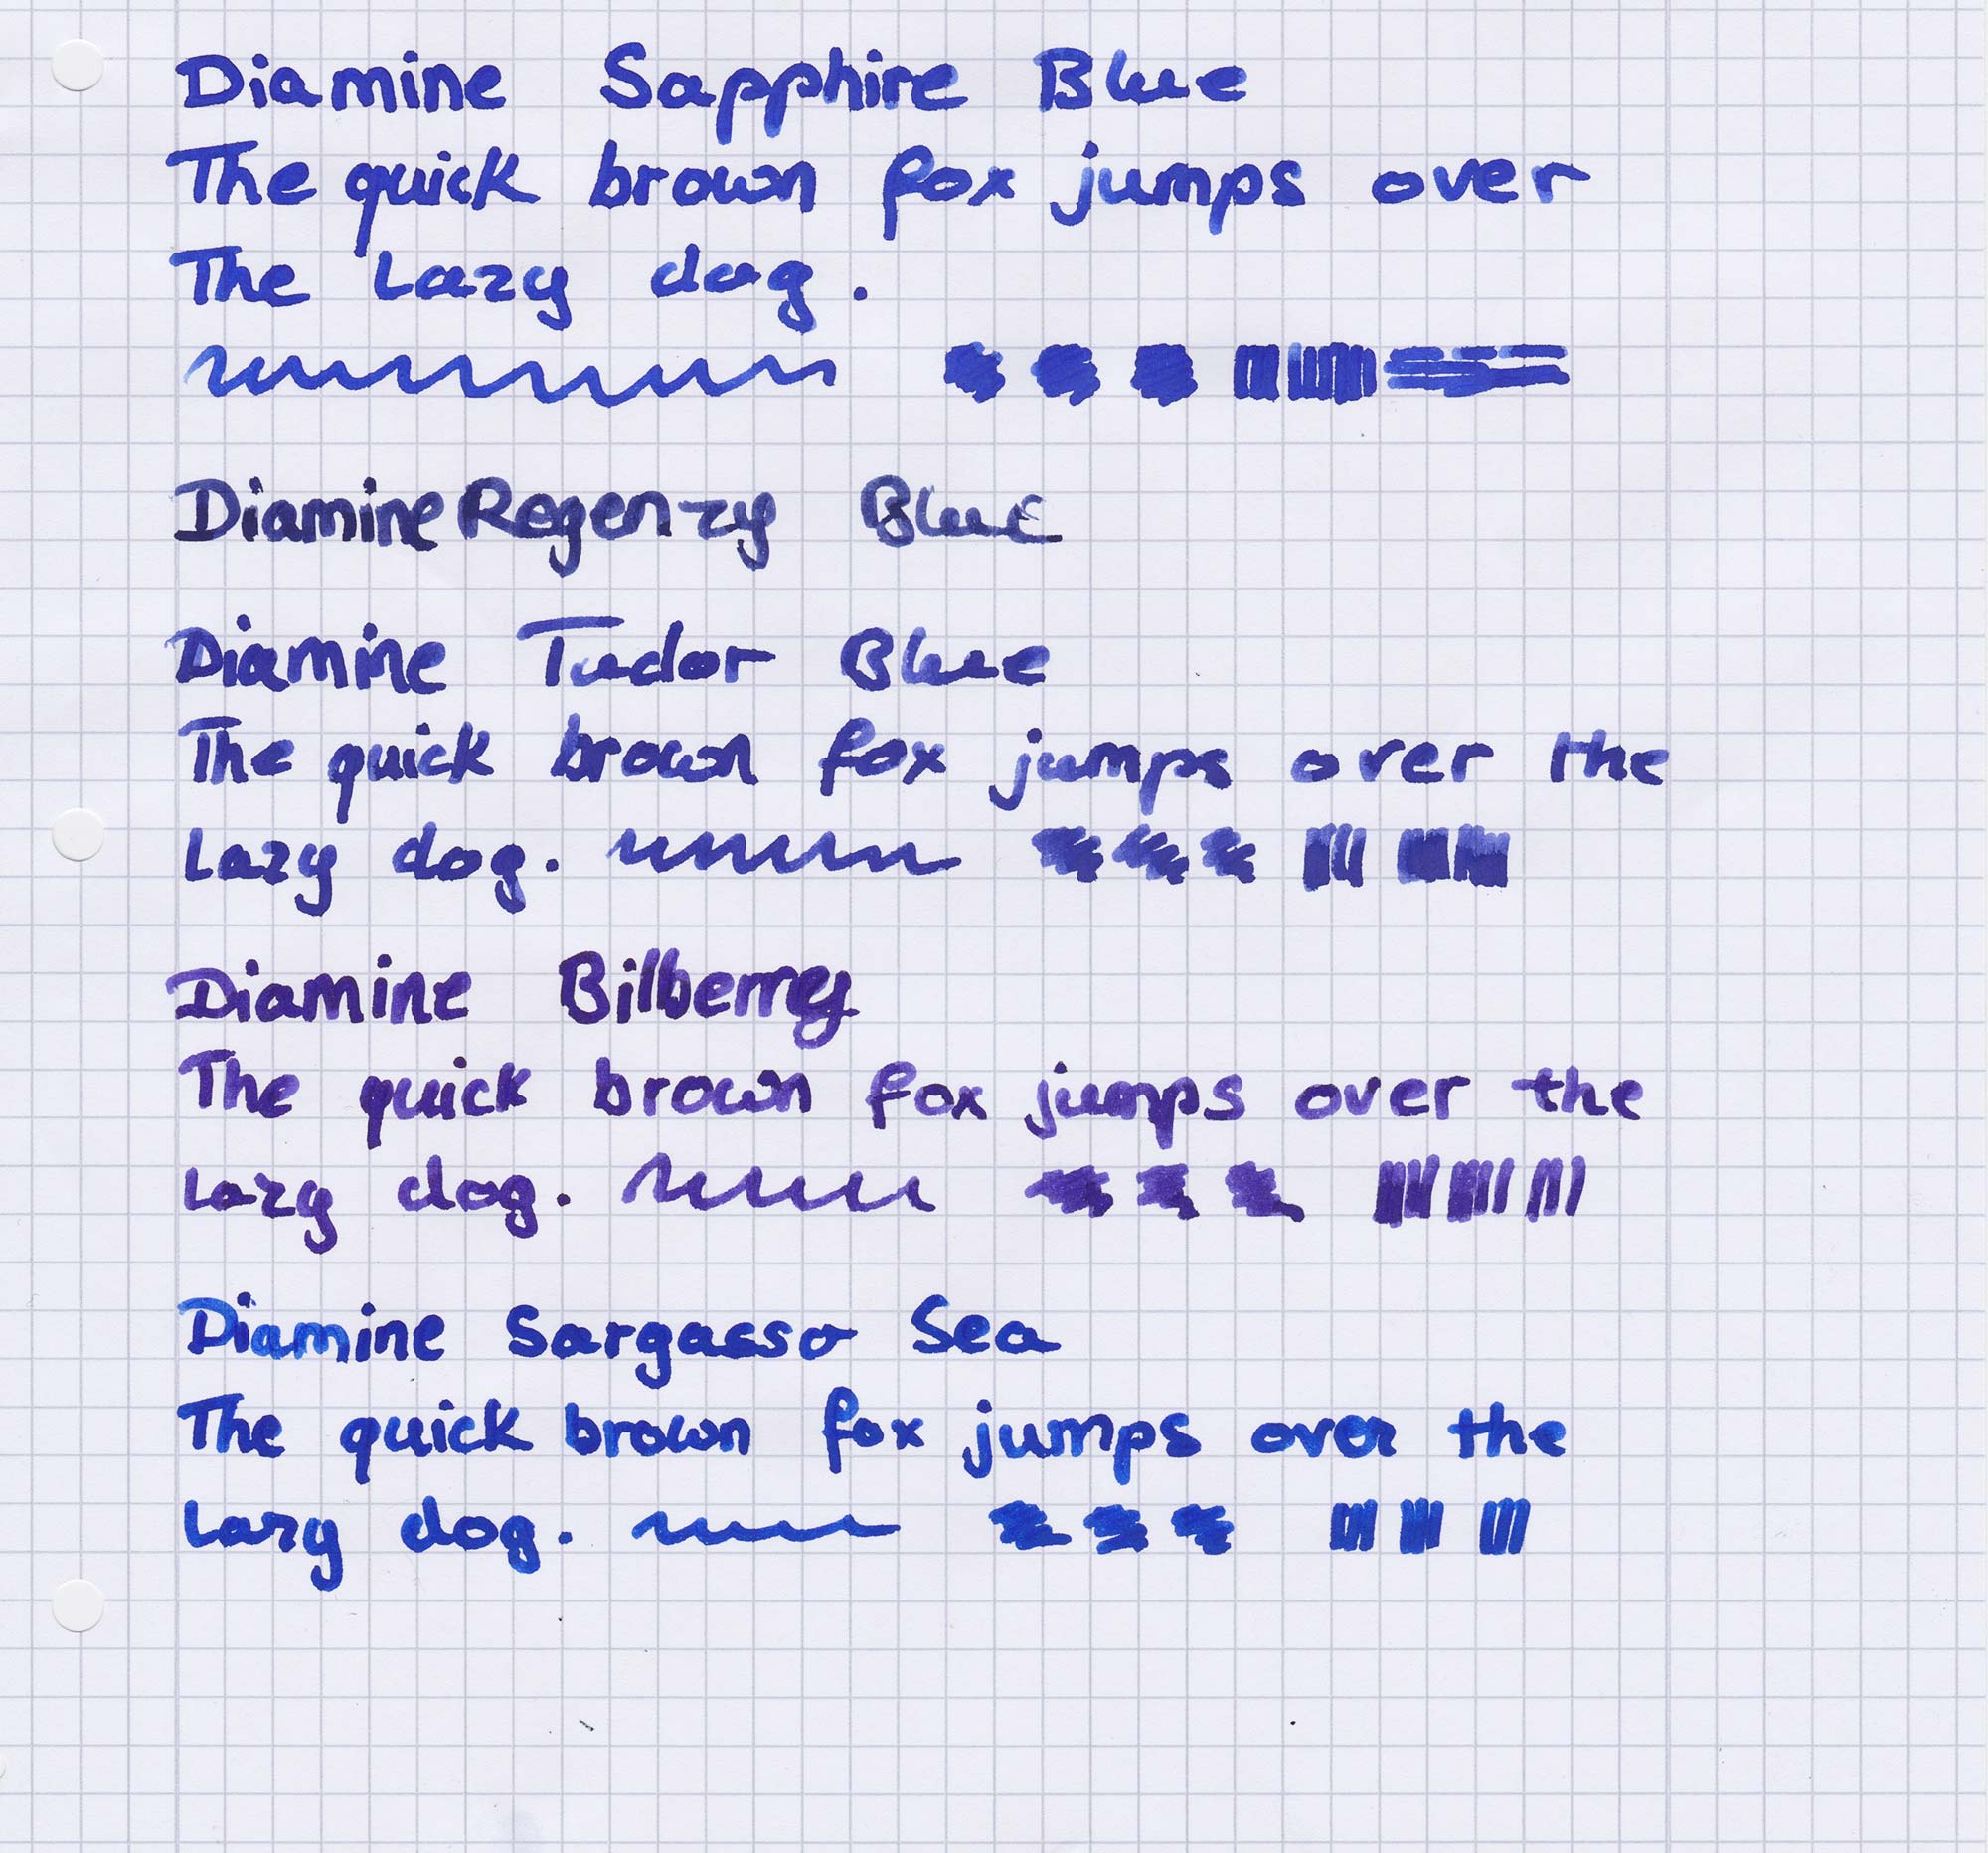 Diamine Sapphire Blue
The quick brown fox jumps over
The Lazy dog.
Diamine Regenzy Blue
Diamine Tudor Blue
The quick brown fox jumps over the
Lazy dog.
Diamine Bilberry
The quick brown fox jumps over the
Lazy dog.
Diamine Sargasso Sea
The quick brown fox jumps over the
Lazy dog.